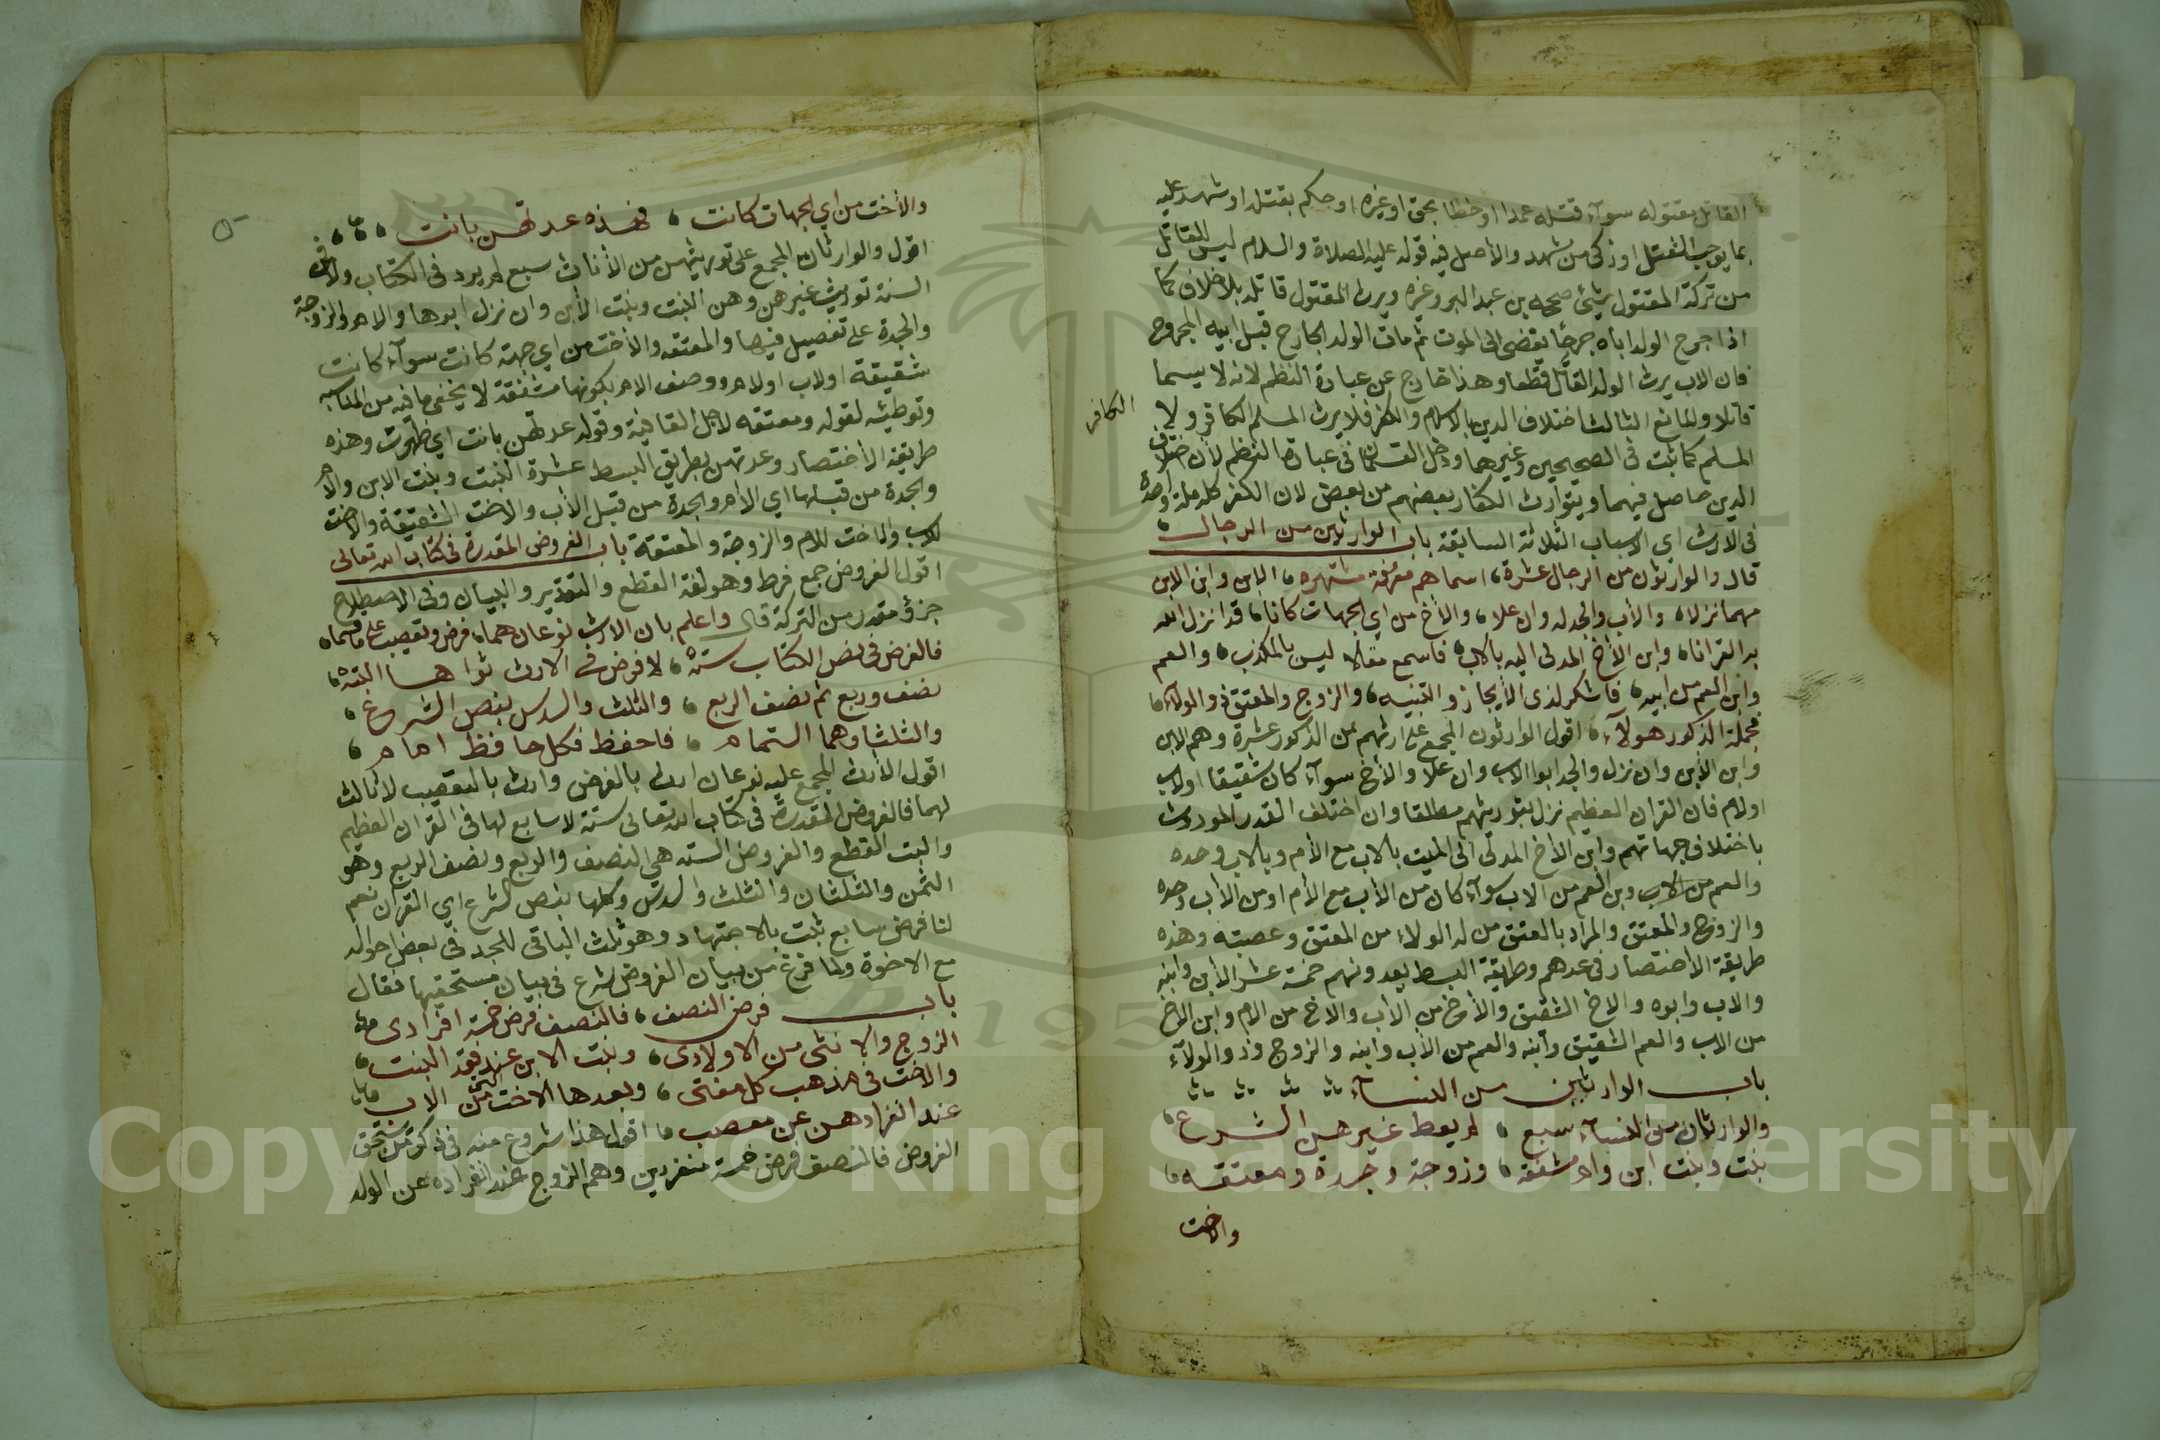 القاتل مقتوله سوآء قتله عمدا او خطا بحق او غيره او حكم بقتله او شهد عليه
بما يوجب القتل او زكى من شهد والأصل فيه قوله عليه الصلاة والسلام ليس للقاتل
من تركة المقتول شئ صححه بن عبد البر وغيره ويرث المقتول قاتله بلا خلاف كما
اذا جرح الولد اباه جرحًا يفضى الى الموت ثم مات الولد الجارح قبل ابيه المجروح
فان الاب يرث الولد القاتل قطعا وهذا خارج عن عبارة النظم لانه لا يسما
قاتلا والمانع الثالث اختلاف الدين بالاسلام والكفر فلا يرث المسلم الكافر ولا
الكافر
المسلم كما ثبت فى الصحيحين وغيرهما ودخل القسمان فى عبارة النظم لأن اختلاف
الدين حاصل فيهما ويتوارث الكفار بعضهم من بعض لان الكفر كله ملة واحدة
فى الارث اي الاسباب الثلاثة السابقة باب الوارثين من الرجال
قال والوارثون من الرجال عشرة، اسماهم معرفة مشتهره، الابن وابن الابن
مهما نزلا، والأب والجد له وان علا، والأخ من اي الجهات كانا، قد انزل الله
به القرانا، وابن الأخ المدلى اليه بالاب، فاسمع مقالا ليس بالمكذب، والعم
وابن العم من ابيه، فاشكر لذى الأيجاز والتنبيه، والزوج والمعتق ذو الولاء،
فجملة الذكور هولآء، اقول الوارثون المجمع على ارثهم من الذكور عشرة وهم الابن
وابن الأبن وان نزل والجد ابوا الاب وان علا والأخ سوآء كان شقيقا او لاب
او لام فان القران العظيم نزل بتوريثهم مطلقا وان اختلف القدر الموروث
باختلاف جهاتهم وابن الأخ المدلى الى الميت بالاب مع الأم وبالاب وحده
والعم من الاب وبن العم من الاب سوآء كان من الأب مع الأم او من الأب وحده
والزوج والمعتق والمراد بالمعتق من له الولاء من المعتق وعصبته وهذه
طريقة الأختصار فى عدهم وطريقة البسط يعدونهم خمسة عشر الأبن وابنه
والاب وابوه والاخ الشقيق والأخ من الأب والاخ من الام وابن الاخ
من الاب والعم الشقيق وابنه والعم من الأب وابنه والزوج وذو الولآء
باب الوارثين من النسآء
والوارثات من النسآء سبع، لم يعط غيرهن الشرع،
بنت وبنت ابن وام مشفقة، وزوجة وجدة ومعتقه،
والاخت
والأخت من اي الجهات كانت، فهذه عدتهن بانت،
اقول والوارثات المجمع على توريثهن من الأناث سبع لم يرد فى الكتاب ولا فى
السنة توريث غيرهن وهن البنت وبنت الأبن وان نزل ابوها والام والزوجة
والجدة على تفصيل فيها والمعتقه والأخت من اي جهة كانت سوآء كانت
شقيقة او لاب او لام ووصف الام بكونها مشفقة لا يخفى ما فيه من المناسبه
وتوطئيه لقوله ومعتقه لاجل القافية وقوله عدتهن بانت اي ظهرت وهذه
طريقة الأختصار وعدتهن بطريق البسط عشرة البنت وبنت الابن والأم
والجدة من قبلها اي الأم والجدة من قبل الأب والاخت الشقيقة والاخت
لاب والاخت للام والزوجة والمعتقة باب الفروض المقدرة فى كتاب الله تعالى
اقول الفروض جمع فرط وهو لغة القطع والتقدير والبيان وفى الاصطلاح
جزؤ مقدر من التركة قال واعلم بان الارث نوعان هما، فرض وتعصيب على ما قسما،
فالفرض فى نص الكتاب سته، لا فرض فى الارث سواها البته،
نصف وربع ثم نصف الربع، والثلث والسدس بنص الشرع،
والثلثا وهما التمام، فاحفظ فكل حافظ امام،
اقول الأرث المجمع عليه نوعان ارث بالفرض وارث بالتعصيب لا ثالث
لهما فالفروض المقدرة فى كتاب الله تعالى ستة لا سابع لها فى القران العظيم
والبت القطع والفروض الستة هي النصف والربع ونصف الربع وهو
الثمن والثلثان والثلث والسدس وكلها بنص الشرع اي القران نعم
لنا فرض سابع ثبت بالاجتهاد وهو ثلث الباقى للجد فى بعض احواله
مع الاخوة ولما فرغ من بيان الفروض شرع فى بيان مستحقيها فقال
باب فرض النصف، فالنصف فرض خمسة افرادى،
الزوج والانثى من الاولادى، وبنت الابن عند فقد البنت،
والاخت فى مذهب كل مفتى، وبعدها الاخت التى من الاب،
عند انفرادهن عن معصب، اقول هذا شروع منه فى ذكر من يستحق
الفروض فالنصف فرض خمسة منفردين وهم الزوج عند انفراده عن الولد
Copyright © King Saud University
195